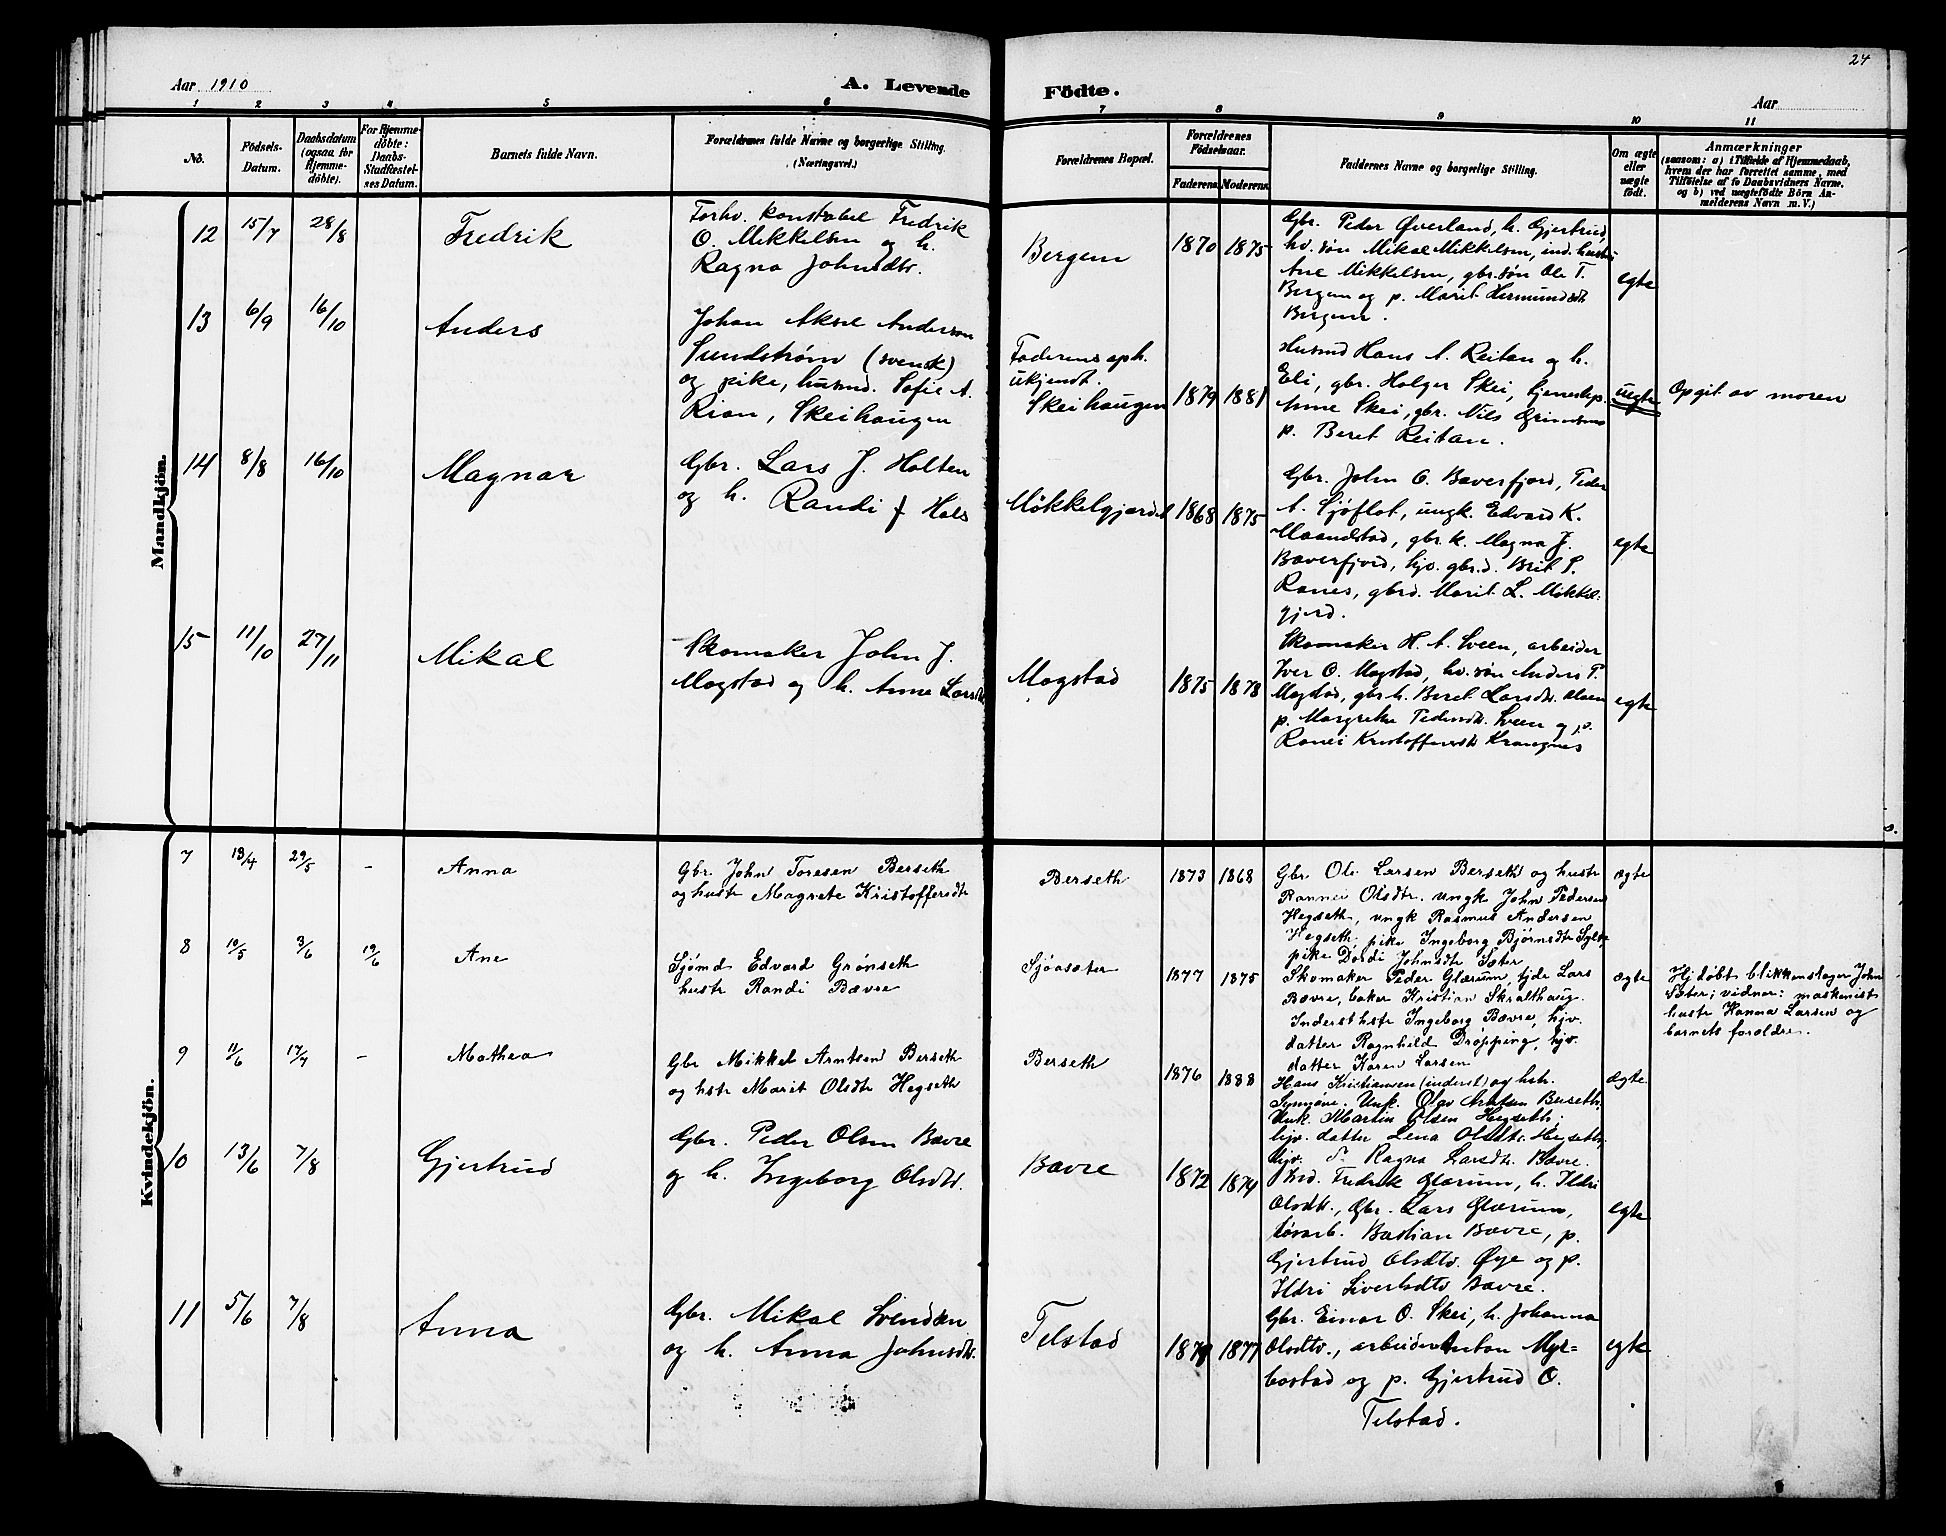 24
Aar 1910
A. Levende Födte.
Aar
1 2 3 4 5 6 7 8 9 10 11
No.
Födsels-Datum.
Daabsdatum (ogsaa for Hjemmedöbte).
For Hjemmedöbte: Daabs-Stadfæstelses Datum.
Barnets fulde Navn.
Forældrenes fulde Navne og borgerlige Stilling. (Næringsvei.)
Forældrenes Bopæl.
Forældrenes Födselsaar.
Faderens. Moderens.
Faddernes Navne og borgerlige Stilling.
Om ægte eller uægte födt.
Anmærkninger
(saasom: a) i Tilfælde af Hjemmedaab,
hvem der har forrettet samme, med
Tilföielse af to Daabsvidners Navne,
og b) ved uægtefödte Börn An-
melderens Navn m. V.)
Mandkjön.
12 15/7 28/8 Fredrik
Forhv. konstabel Fredrik
O. Mikkelsen og h.
Ragna Johnsdtr.
Bergem 1870 1875
Gbr. Peder Øverland, h. Gjertrud,
hv. søn Mikal Mikkelsen, ind. hustru
Ane Mikkelsen, gbr. søn Ole T.
Bergem og p. Marit Hermundsdt
Bergem.
egte
13 6/9 16/10 Anders
Johan Aksel Anderson
Sundstrøm (svensk)
og pike, husmd. Sofie A.
Rian, Skeihaugen
Faderens oph.
ukjendt.
Skeihaugen 1879 1881
Husmd Hans A. Reitan og h.
Eli, gbr. Holger Skei, tjenestep.
Anne Skei, gbr. Nils
p. Beret Reitan.
uegte
Opgit av moren
14 8/8 16/10 Magnar
Gbr. Lars J. Holten
og h. Randi J. Hals
Møkkelgjerdet 1868 1875
Gbr. John O. Bæverfjord, Peder
A. Sjøflot, ungk. Edvard K.
Maandstad, gbr. k. Magna J.
Bæverfjord, hjv. gbr.d. Brit S.
Ranes, gbrd. Marit L. Møkkel-
gjerd.
egte
15 11/10 27/11 Mikal
Skomaker John J.
Mogstad og h. Anne Larsdtr
Mogstad 1875 1878
Skomaker H. A. Sveen, arbeider
Iver O. Mogstad, hv. søn Anders P.
Mogstad, gbr. h. Beret Larsdtr. Moen
p. Margrethe Pedersdtr. Sveen og p.
Ranei Kristoffersdtr Krangnes
egte
Kvindekjön.
7 13/4 29/5 - Anna
Gbr. John Toresen Berseth
og hustr Magrete Kristoffersdtr
Berseth 1873 1868
Gbr Ole Larsen Berseth og hustr
Rannei Olsdtr. ungk John Pedersen
Hegseth, ungk Rasmus Andersen
Hegseth, pike Ingeborg Bjørnsdtr Sylte
pike Dordi Johnsdtr Sæter
ægte
8 10/5 3/6 19/6 Ane
Sjømd Edvard Grønseth
hustr Randi Bævre
Sjøasæter 1877 1875
Skomaker Peder Glærum, tjdr Lars
Bævre, baker Kristian Skralthaug.
Inderst hstr Ingeborg Bævre, hjv.
datter Ragnhild Dröpping, hjv.
datter Karen Larsen
ægte
Hj.döbt blikkenslager John
Sæter; vidner: maskinist
hustr Hanna Larsen og
barnets forældre.
9 11/6 17/7 - Mathea
Gbr Mikkel Arntsen Berseth
og hstr Marit Olsdtr Hegseth
Berseth 1876 1888
Hans Kristiansen (inderst) og hstr.
Synnøve. Unk. Olav Arntsen Berseth,
Unk. Martin Olsen Hegseth,
hjv. datter Lena Olsdtr. Hegseth,
hjv. dr Ragna Larsdtr. Bævre.
ægte
10 13/6 7/8 Gjertrud
Gbr. Peder Olsen Bævre
og h. Ingeborg Olsdtr.
Bævre 1872 1874
Ind. Fredrik Glærum, h. Ildri
Olsdtr., Gbr. Lars Glærum,
løsarb. Bastian Bævre, p.
Gjertrud Olsdtr. Øye og p.
Ildri Sivertsdtr Bævre.
egte
11 5/6 7/8 Anna
Gbr. Mikal Svendsen
og h. Anna Johnsdtr.
Telstad 1877
Gbr. Einar O. Skei, h. Johanna
Olsdtr., arbeider Anton Myr-
bostad og p. Gjertrud O.
Telstad.
egte